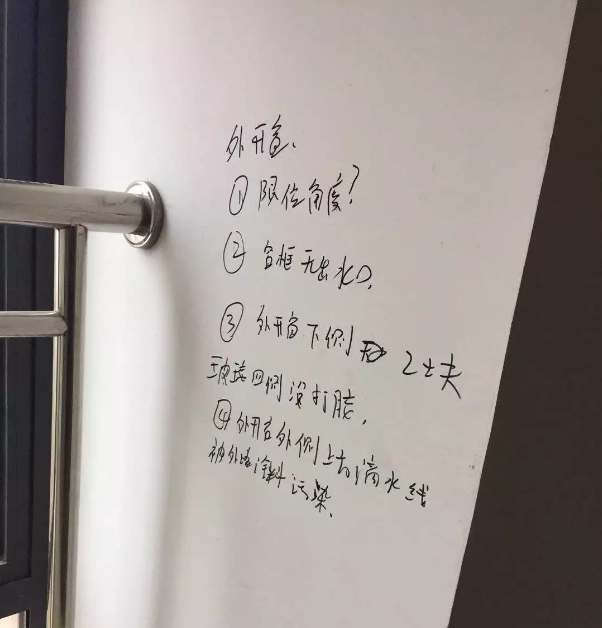 外开窗、
① 限位角度？
② 窗框无出水口。
③ 外开窗下侧
玻璃四侧没打胶。
④ 外开窗外侧上方滴水线
被外墙涂料污染.